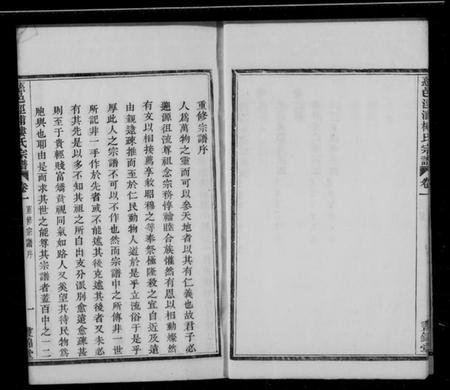 慈邑洭浦樓氏宗譜 卷一
重修宗譜序
人爲萬物之靈而可以叅天地者以其有仁義也故君子必
遡源徂流尊祖念宗務惇繪睦合族懽然有恩以相動燦然
有文以相接薦享敘昭穆之等奉祭極隆殺之宜自近及遠
由親逮疎推而至於仁民動物人道於是乎立流俗于是乎
厚此人之宗譜不可以不作也然而宗譜中之所傳非一世
所記非一手作於先者或不能述其後克述其後者又未必
有其先是以多不知其祖之所自出支分派别愈遠愈疎甚
則至于貴輕賤富矯貧視同氣如路人又奚望其待民物爲
胞與也耶由是而求其世之能尊其宗譜者蓋百中之一二
慈邑洭浦樓氏宗譜 卷一 重修宗譜序 一 晝錦堂